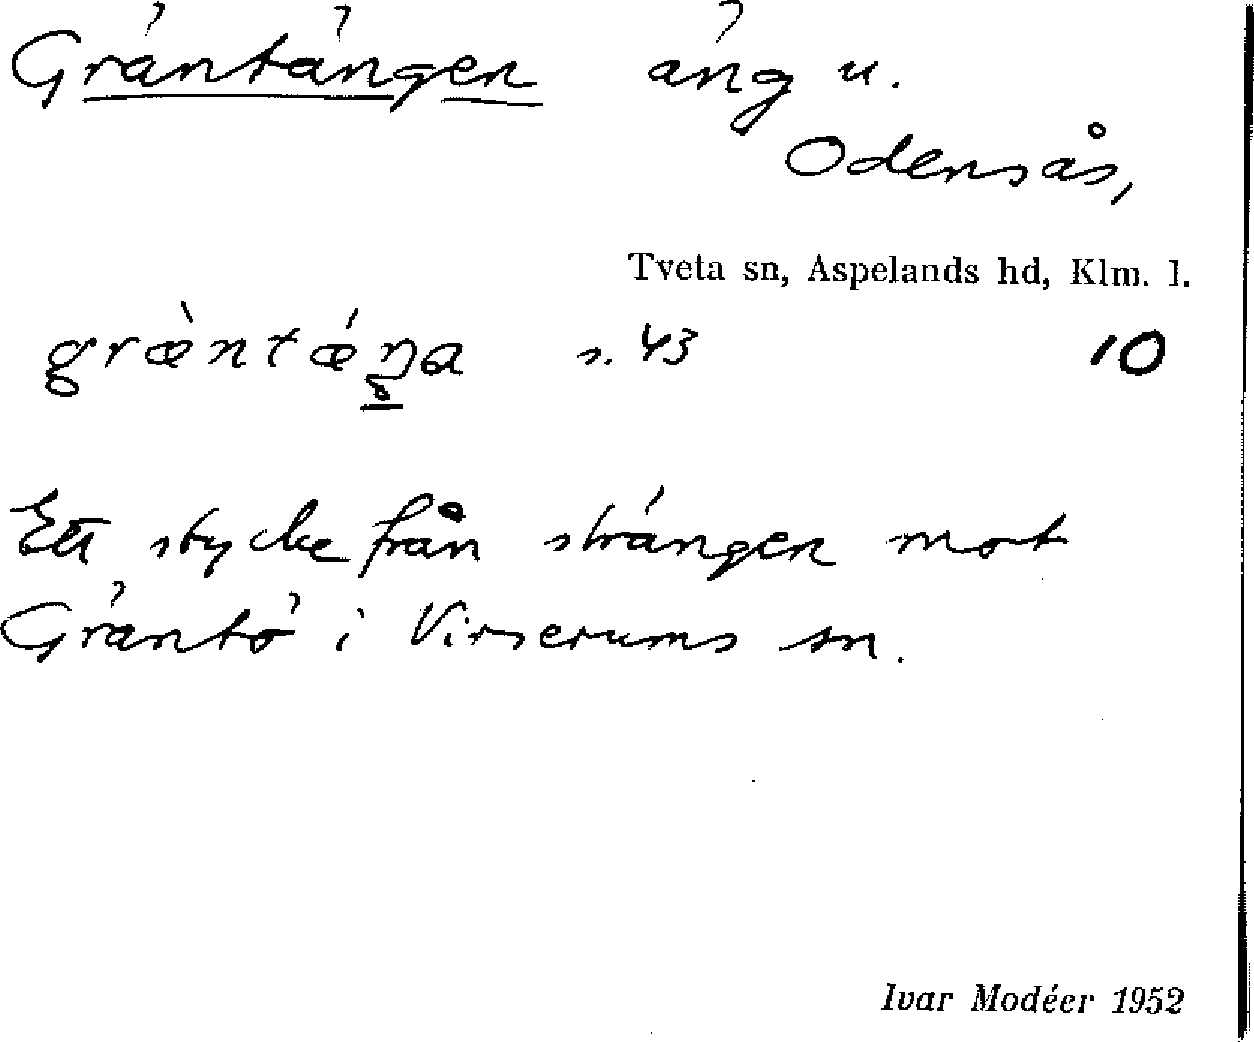 Gräntängen äng u.
Odensås,
Tveta sn, Aspelands hd, Klm. l.
græ̀ntǽŋa s. 43 10
Ett stycke från strängen mot
Gräntö i Virserums sn.
Ivar Modéer 1952